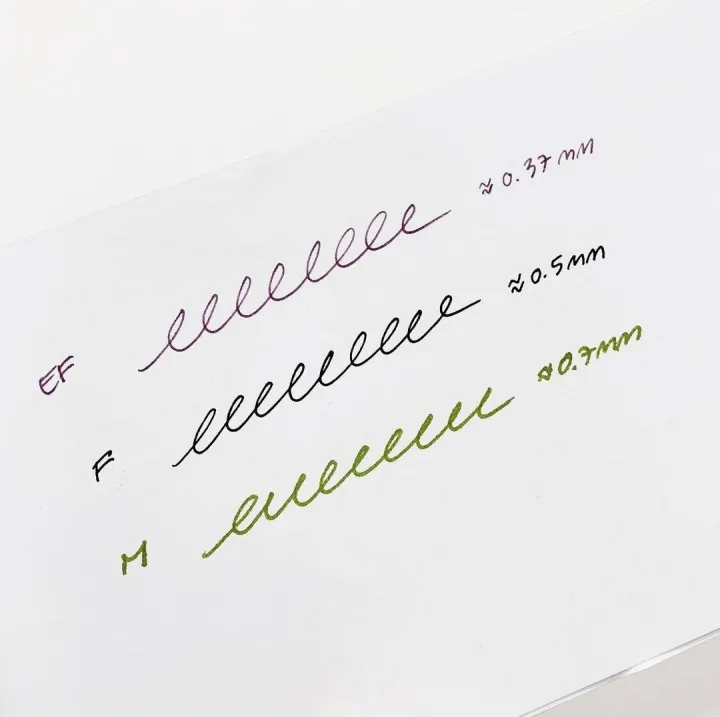 EF ≈ 0.37 mm
F ≈ 0.5 mm
M ≈ 0.7 mm